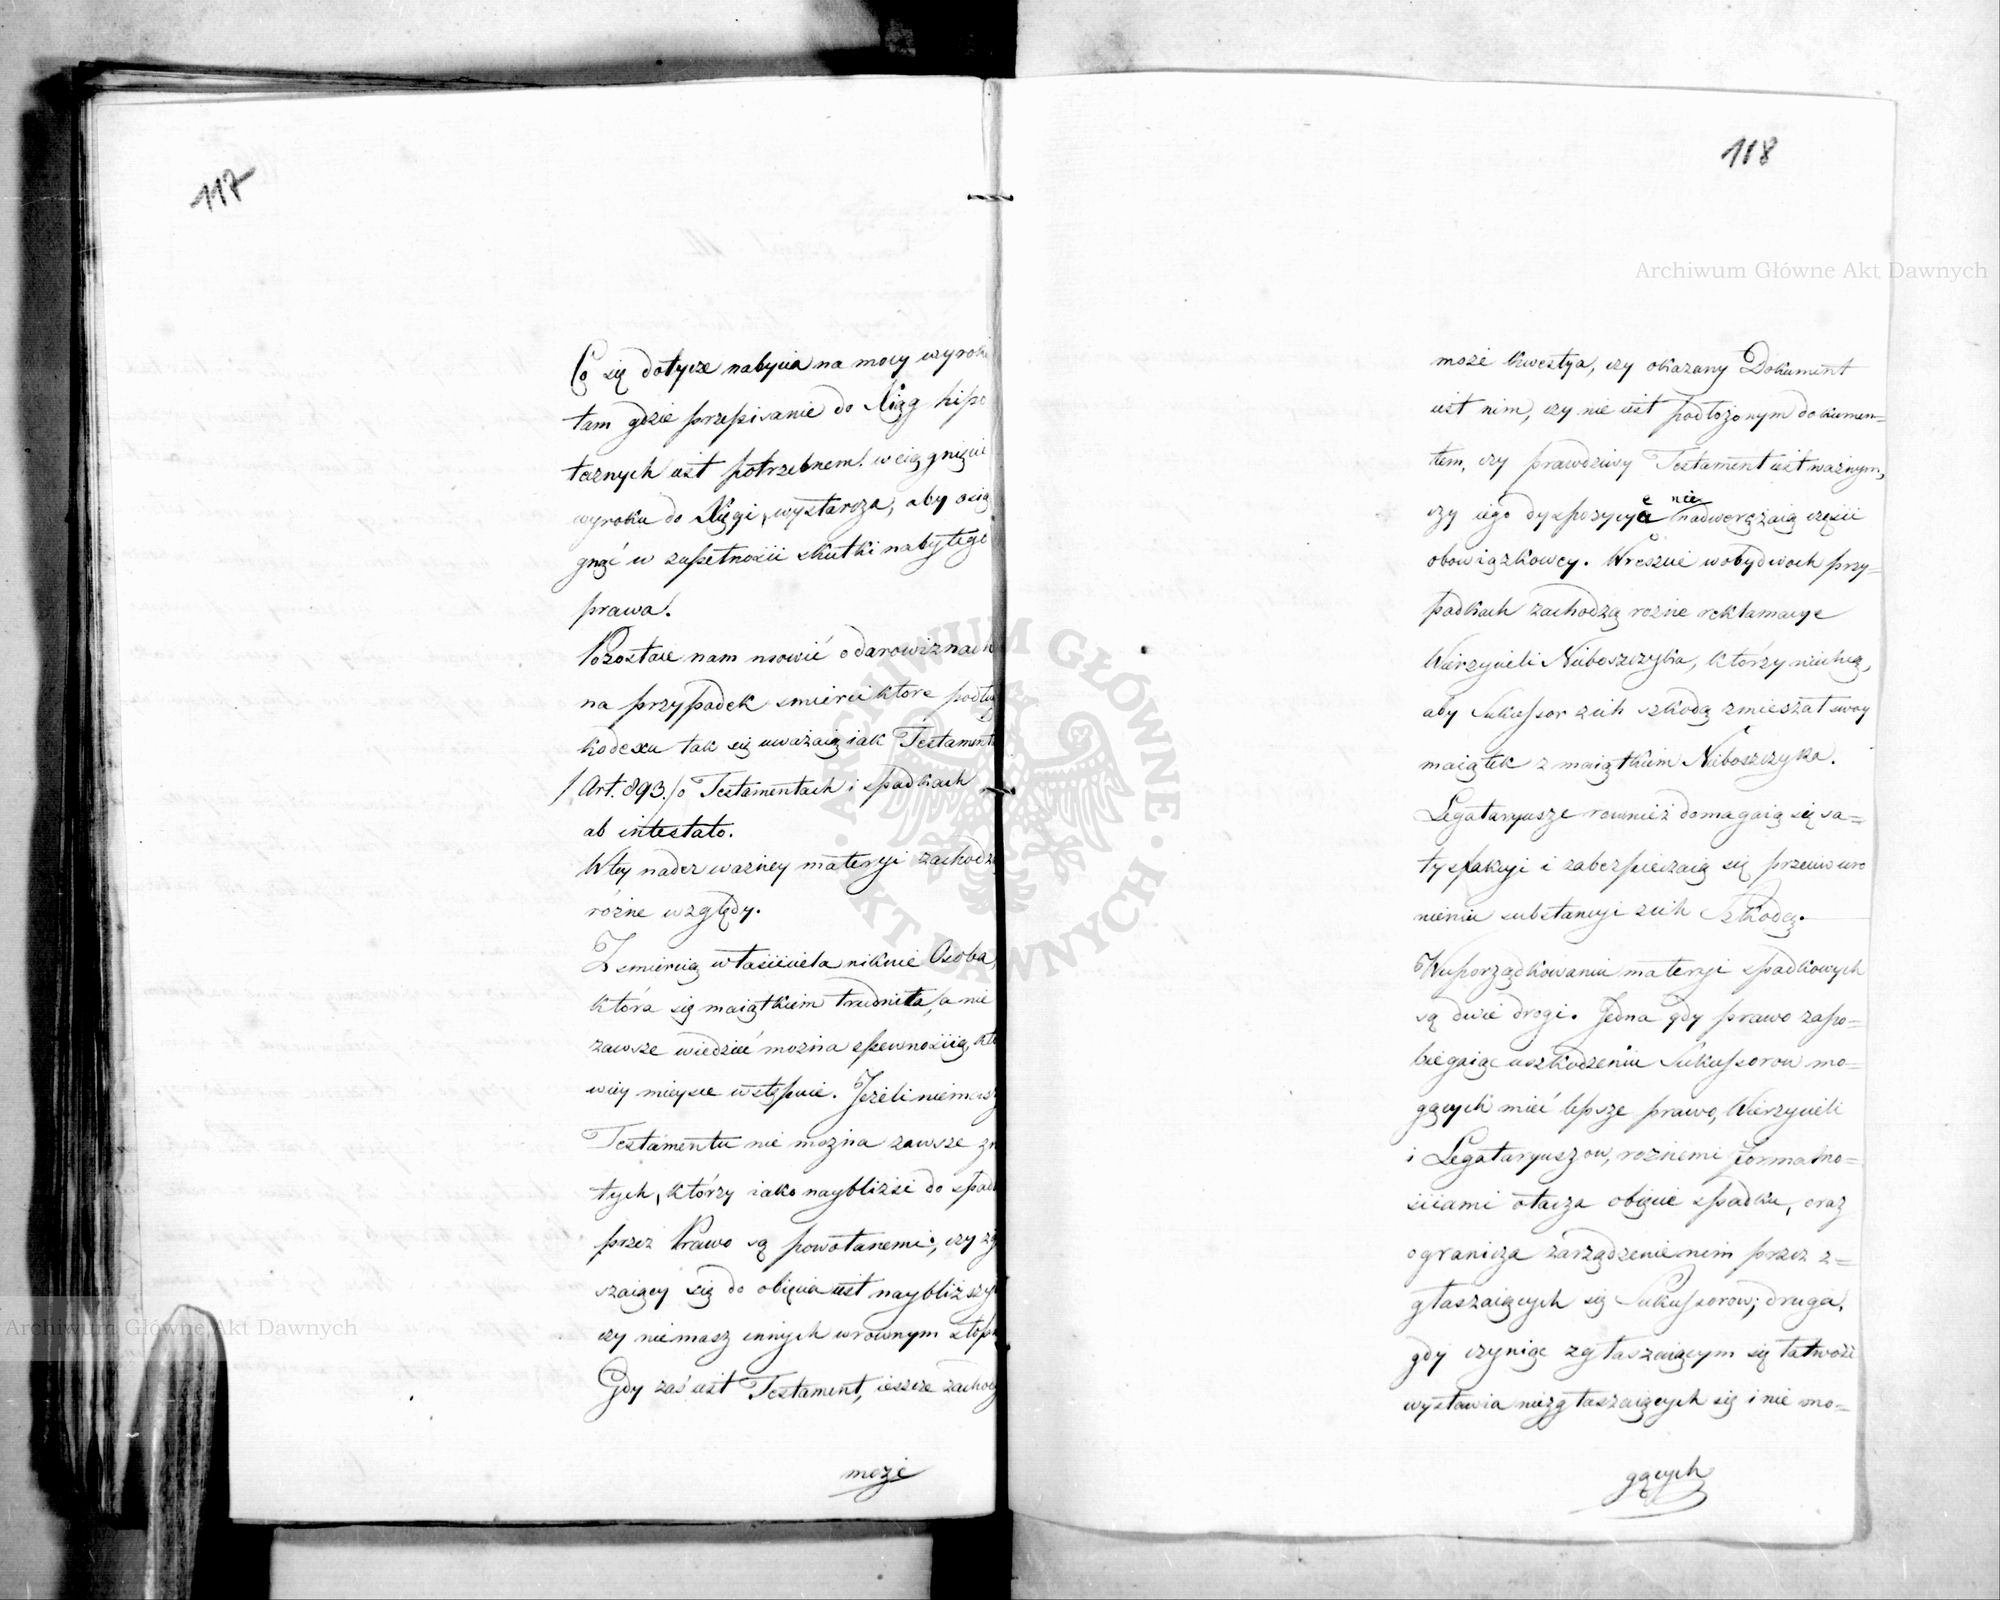 117
Co się dotycze nabycia na mocy wyroku
tam gdzie przepisanie do Xiąg hipo
tecznych iest potrzebnem, wciągnięcie
wyroku do Xięgi, wystarcza, aby osią
gnąć w zupełności skutki nabytego
prawa.
Pozostaie nam mowić o darowiznach
na przypadek smierci które podług
kodexu tak się uważaią iak Testamenta
/Art. 893./ o Testamentach i spadkach
ab intestato.
W tey nader ważney materyi zachodzą
różne względy.
Z smiercią właściciela niknie Osoba,
która się maiątkiem trudniła, a nie
zawsze wiedzieć można z pewnością, kto
w iey mieysce wstępuie. Jeżeli niemasz
Testamentu nie można zawsze zn
tych, którzy iako naybliżsi do spad
przez Prawo są powołanemi, czy zg
szaiący się do obięcia iest naybliższy
czy niemasz innych w rownym stopn
Gdy zaś iest Testament, ieszcze zachodz
może
118
może kwestya, czy okazany Dokument
iest nim, czy nie iest podłożonym dokumen=
tem, czy prawdziwy Testament iest ważnym,
czy iego dyspozycye nie nadwerężaią części
obowiązkowey. Wreszcie w obydwoch przy=
padkach zachodzą rożne reklamacye
Wierzycieli Nieboszczyka, którzy niechcą,
aby Sukcessor z ich szkodą zmieszał swoy
maiątek z maiątkiem Nieboszczyka.
Legataryusze rownież domagaią się sa=
tysfakcyi i zabezpieczaią się przeciw uro
nieniu substancyi z ich Szkodą.
W uporządkowaniu materyi spadkowych
są dwie drogi. Jedna gdy prawo zapo=
biegaiąc uszkodzeniu Sukcessorow mo=
gących mieć lepsze prawo, Wierzycieli
i Legataryuszow, rożnemi formalno=
ściami otacza obięcie spadku, oraz
ogranicza zarządzenie nim przez z=
głaszaiących się Sukcessorow; druga,
gdy czyniąc zgłaszaiącym się łatwość
wystawia niezgłaszaiących się i nie mo=
gących
Archiwum Główne Akt Dawnych
Archiwum Główne Akt Dawnych
ARCHIWUM GŁÓWNE · AKT DAWNYCH ·